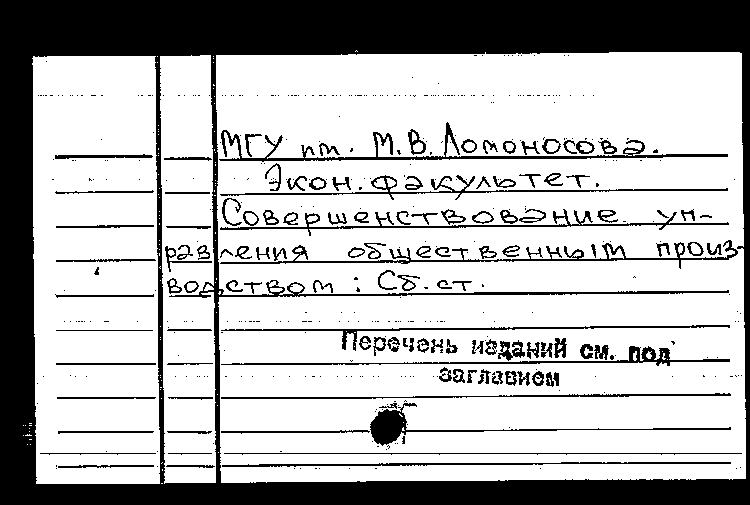 МГУ им. М.В. Ломоносова.
Экон. факультет.
Совершенствование уп-
равления общественным произ-
водством : Сб. ст.
Перечень изданий см. под
заглавием